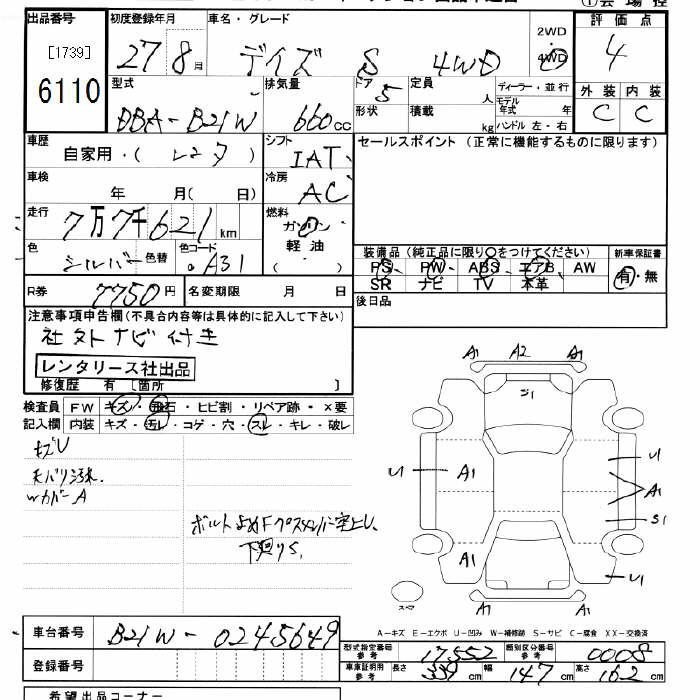 ①会場控
出品番号 初度登録年月 車名・グレード 2WD 評価点
[1739] 27 8月 デイズ S 4WD 4WD 4
6110 型式 排気量 ドア 定員 ディーラー・並行 外装 内装
DBA-B21W 660cc 5 人 モデル年式 年 C C
形状 積載 kg ハンドル 左・右
車歴 シフト セールスポイント (正常に機能するものに限ります)
自家用・( レンタ ) IAT
車検 冷房
年 月( 日) AC
走行 燃料
7万7千621km ガソリン
色 色替 色コード 軽油 装備品 (純正品に限り○をつけてください) 新車保証書
シルバー A31 ( ) PS PW ABS エアB AW 有・無
SR ナビ TV 本革
R券 7750円 名変期限 月 日 後日品
注意事項申告欄(不具合内容等は具体的に記入して下さい)
社外ナビ付き
レンタリース社出品
修復歴 有 [箇所 ]
検査員 FW キズ・飛石・ヒビ割・リペア跡・×要
記入欄 内装 キズ・汚レ・コゲ・穴・スレ・キレ・破レ
A1 A2 A1
S1
キズU
天バリ汚れ.
WカバーA
U1 A1 U1
A1
S1
下廻りS.
A1 U1
スペア A1 A1
A-キズ E-エクボ U-凹み W-補修跡 S-サビ C-腐食 XX-交換済
車台番号 B21W-0245649
型式指定番号 参考 17552 類別区分番号 参考 0008
登録番号 車車証明用 参考 長さ 339cm 幅 147cm 高さ 162cm
希望出品コーナー